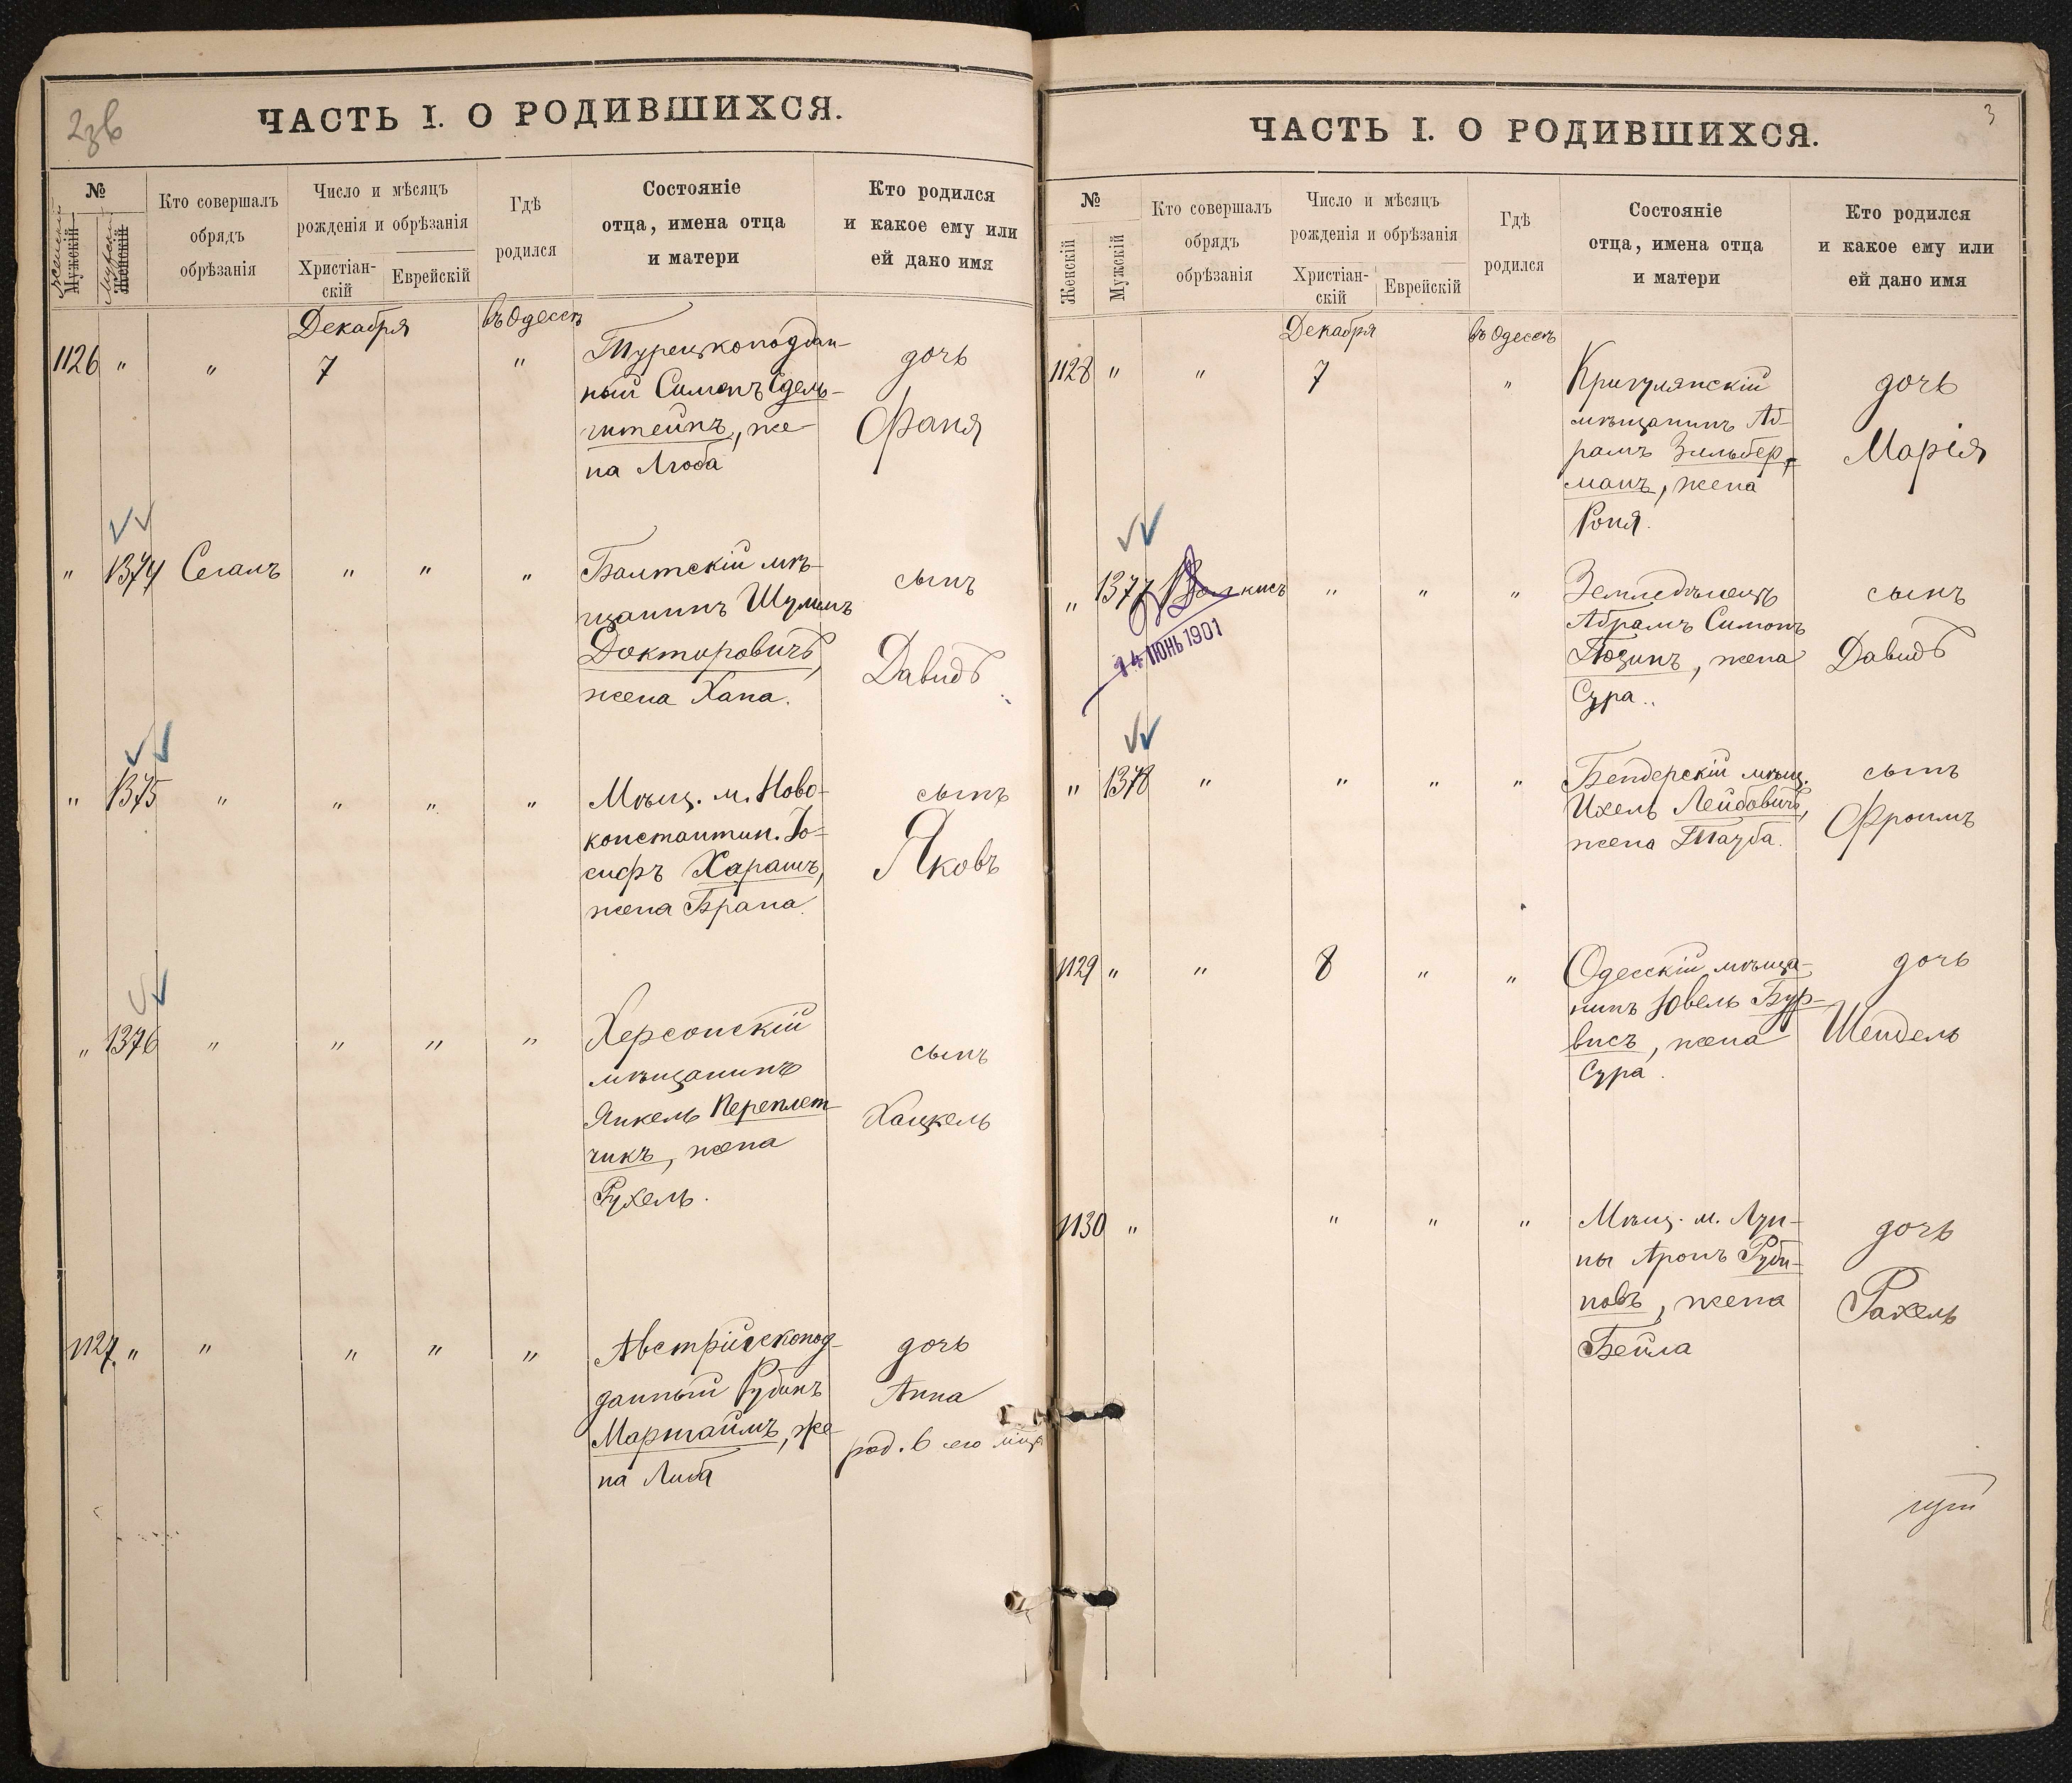 2зв
ЧАСТЬ I. О РОДИВШИХСЯ.
№
Женскій
Мужскій
Мужскій
Женскій
Кто совершалъ
обрядъ
обрѣзанія
Число и мѣсяцъ
рожденія и обрѣзанія
Христіан-
скій
Еврейскій
Гдѣ
родился
Состояніе
отца, имена отца
и матери
Кто родился
и какое ему или
ей дано имя
Декабря
въ Одессѣ
1126 " " 7 "
Турецкоподдан-
ный Симонъ Едель-
штейнъ, же-
на Люба
дочь
Фаня
" 1374 Сегалъ " " "
Балтскій мѣ-
щанинъ Шулимъ
Докторовичъ,
жена Хана.
сынъ
Давидъ
" 1375 " " " "
Мѣщ. м. Ново-
константин. Іо-
сифъ Харашъ,
жена Брана.
сынъ
Яковъ
" 1376 " " " "
Херсонскій
мѣщанинъ
Янкель Переплет-
чикъ, жена
Рухель.
сынъ
Хацкель
1127 " " " " "
Австрійскопод-
данный Рубинъ
Маргаимъ, же-
на Либа
дочь
Анна
род. 6 его
ЧАСТЬ I. О РОДИВШИХСЯ.
3
№
Женскій
Мужскій
Кто совершалъ
обрядъ
обрѣзанія
Число и мѣсяцъ
рожденія и обрѣзанія
Христіан-
скій
Еврейскій
Гдѣ
родился
Состояніе
отца, имена отца
и матери
Кто родился
и какое ему или
ей дано имя
Декабря
въ Одессѣ
1128 " " 7 "
Кригулянскій
мѣщанинъ Аб-
рамъ Зильбер-
манъ, жена
Роня.
дочь
Марія
" 1377 " " "
14 ІЮНЬ 1901
Земледѣлецъ
Абрамъ Симонъ
жена
Сура..
сынъ
Давидъ
" 1378 " " " "
Бендерскій мѣщ.
Ихель Лейбовичъ,
жена Тауба.
сынъ
Фроимъ
1129 " " 8 " "
Одесскій мѣща-
нинъ Іовель Бур-
висъ, жена
Сура.
дочь
Шендель
1130 " " " "
Мѣщ. м. Лун-
ны Аронъ Руби-
новъ, жена
Бейла
дочь
Рахель